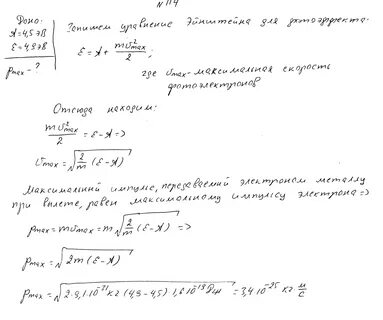 N 114
Дано:
A = 4,5 эВ
ε = 4,9 эВ
p max - ?
Запишем уравнение Эйнштейна для фотоэффекта:
ε = A + mv²max / 2 ;
где v max - максимальная скорость
фотоэлектронов
Отсюда находим:
mv²max / 2 = ε - A =>
v max = √(2/m (ε - A))
Максимальный импульс, передаваемый электроном металлу
при вылете, равен максимальному импульсу электрона =>
p max = mv max = m √(2/m (ε - A)) =>
p max = √(2m(ε - A))
p max = √(2 · 9,1 · 10⁻³¹ кг (4,9 - 4,5) · 1,6 · 10⁻¹⁹ Дж) = 3,4 · 10⁻²⁵ кг · м/с